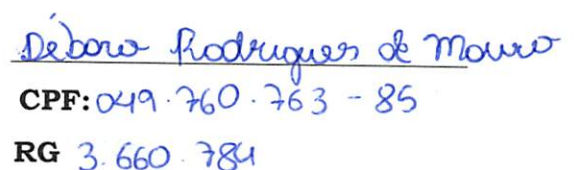 Débora Rodrigues de Moura
CPF: 049.760.763-85
RG 3.660.784